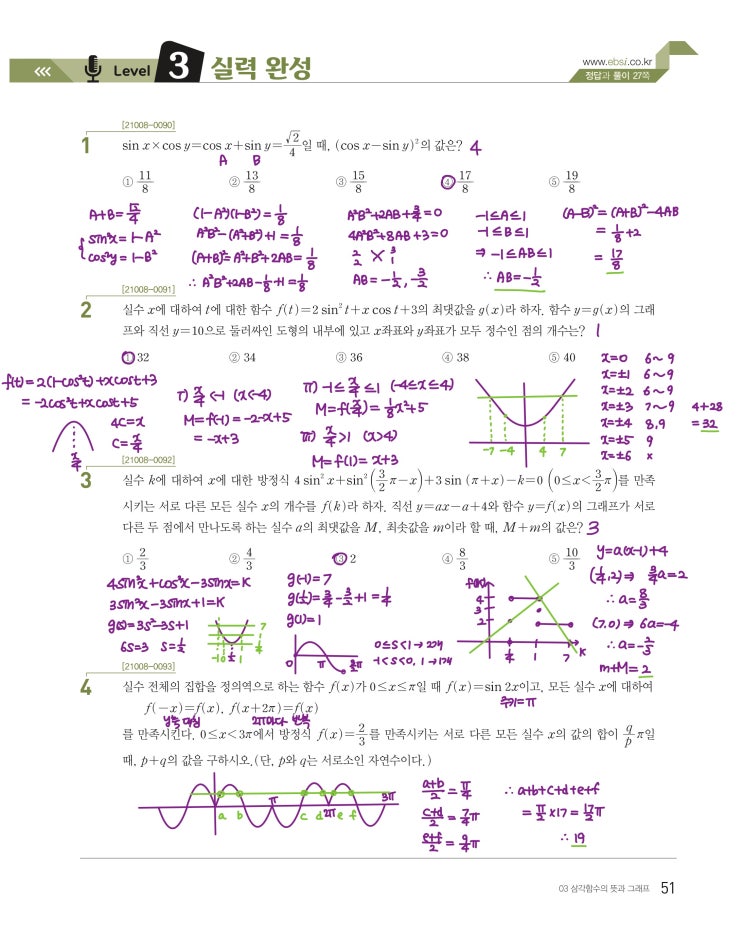 Level 3 실력 완성
www.ebsi.co.kr
정답과 풀이 27쪽
[21008-0090]
1 sin x×cos y=cos x+sin y=√2/4일 때, (cos x−sin y)²의 값은? 4
A B
① 11/8 ② 13/8 ③ 15/8 ④ 17/8 ⑤ 19/8
A+B=√2/4
sin²x=1-A²
cos²y=1-B²
(1-A²)(1-B²)=1/8
A²B²-(A²+B²)+1=1/8
(A+B)²=A²+B²+2AB=1/8
∴ A²B²+2AB-1/8+1=1/8
A²B²+2AB+3/4=0
4A²B²+8AB+3=0
2 3
2 1
AB=-1/2, -3/2
-1≤A≤1
-1≤B≤1
⇒ -1≤AB≤1
∴ AB=-1/2
(A-B)²=(A+B)²-4AB
=1/8+2
=17/8
[21008-0091]
2 실수 x에 대하여 t에 대한 함수 f(t)=2 sin² t+x cos t+3의 최댓값을 g(x)라 하자. 함수 y=g(x)의 그래
프와 직선 y=10으로 둘러싸인 도형의 내부에 있고 x좌표와 y좌표가 모두 정수인 점의 개수는? 1
① 32 ② 34 ③ 36 ④ 38 ⑤ 40
f(t)=2(1-cos²t)+xcost+3
=-2cos²t+xcost+5
4C=x
C=x/4
x/4
i) x/4<-1 (x<-4)
M=f(-1)=-2-x+5
=-x+3
ii) -1≤x/4≤1 (-4≤x≤4)
M=f(x/4)=1/8x²+5
iii) x/4>1 (x>4)
M=f(1)=x+3
-7 -4 4 7
x=0 6~9
x=±1 6~9
x=±2 6~9
x=±3 7~9
x=±4 8,9
x=±5 9
x=±6 x
4+28
=32
[21008-0092]
3 실수 k에 대하여 x에 대한 방정식 4 sin² x+sin²(3/2π−x)+3 sin (π+x)−k=0 (0≤x<3/2π)를 만족
시키는 서로 다른 모든 실수 x의 개수를 f(k)라 하자. 직선 y=ax−a+4와 함수 y=f(x)의 그래프가 서로
다른 두 점에서 만나도록 하는 실수 a의 최댓값을 M, 최솟값을 m이라 할 때, M+m의 값은? 3
① 2/3 ② 4/3 ③ 2 ④ 8/3 ⑤ 10/3
4sin²x+cos²x-3sinx=k
3sin²x-3sinx+1=k
g(s)=3s²-3s+1
6s=3 s=1/2
7
1
1/4
-1 0 1/2 1
g(-1)=7
g(1/2)=3/4-3/2+1=1/4
g(1)=1
0 π 3/2π
0≤s<1 → 2개
-1<s<0, 1 → 1개
f(k)
4
3
2
1/4 1 7 k
y=a(x-1)+4
(1/4,2) ⇒ 3/4a=2
∴ a=8/3
(7,0) ⇒ 6a=-4
∴ a=-2/3
m+M=2
[21008-0093]
4 실수 전체의 집합을 정의역으로 하는 함수 f(x)가 0≤x≤π일 때 f(x)=sin 2x이고, 모든 실수 x에 대하여
주기=π
f(−x)=f(x), f(x+2π)=f(x)
y축 대칭 2π마다 반복
를 만족시킨다. 0≤x<3π에서 방정식 f(x)=2/3를 만족시키는 서로 다른 모든 실수 x의 값의 합이 q/p π일
때, p+q의 값을 구하시오.(단, p와 q는 서로소인 자연수이다.)
a b π c d 2π e f 3π
a+b/2=π/4
c+d/2=7/4π
e+f/2=9/4π
∴ a+b+c+d+e+f
=π/2×17=17/2π
∴ 19
03 삼각함수의 뜻과 그래프 51